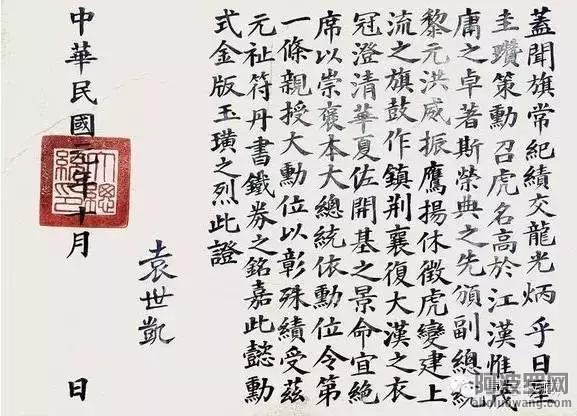 蓋聞旗常紀績交龍光炳乎日星
圭瓚策勳召虎名高於江漢惟
庸之卓著斯榮典之先頒副總統
黎元洪威振鷹揚休徵虎變建上
流之旗鼓作鎮荆襄復大漢之衣
冠澄清華夏佐開基之景命宜絶
席以崇褒本大總統依勳位令第
一條親授大勳位以彰殊績受茲
元祉符丹書鐵券之銘嘉此懿勳
式金版玉璜之烈此證
袁世凱
中華民國年十月 日
大總統印
阿波罗网
aboluowang.com